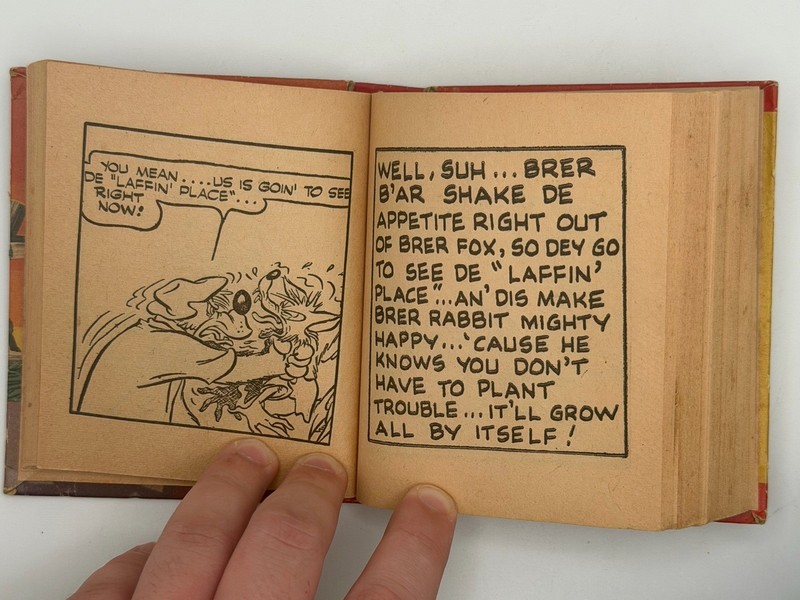 YOU MEAN....US IS GOIN' TO SEE
DE "LAFFIN' PLACE"...
RIGHT
NOW?
WELL, SUH... BRER
B'AR SHAKE DE
APPETITE RIGHT OUT
OF BRER FOX, SO DEY GO
TO SEE DE "LAFFIN'
PLACE"...AN' DIS MAKE
BRER RABBIT MIGHTY
HAPPY...'CAUSE HE
KNOWS YOU DON'T
HAVE TO PLANT
TROUBLE...IT'LL GROW
ALL BY ITSELF!